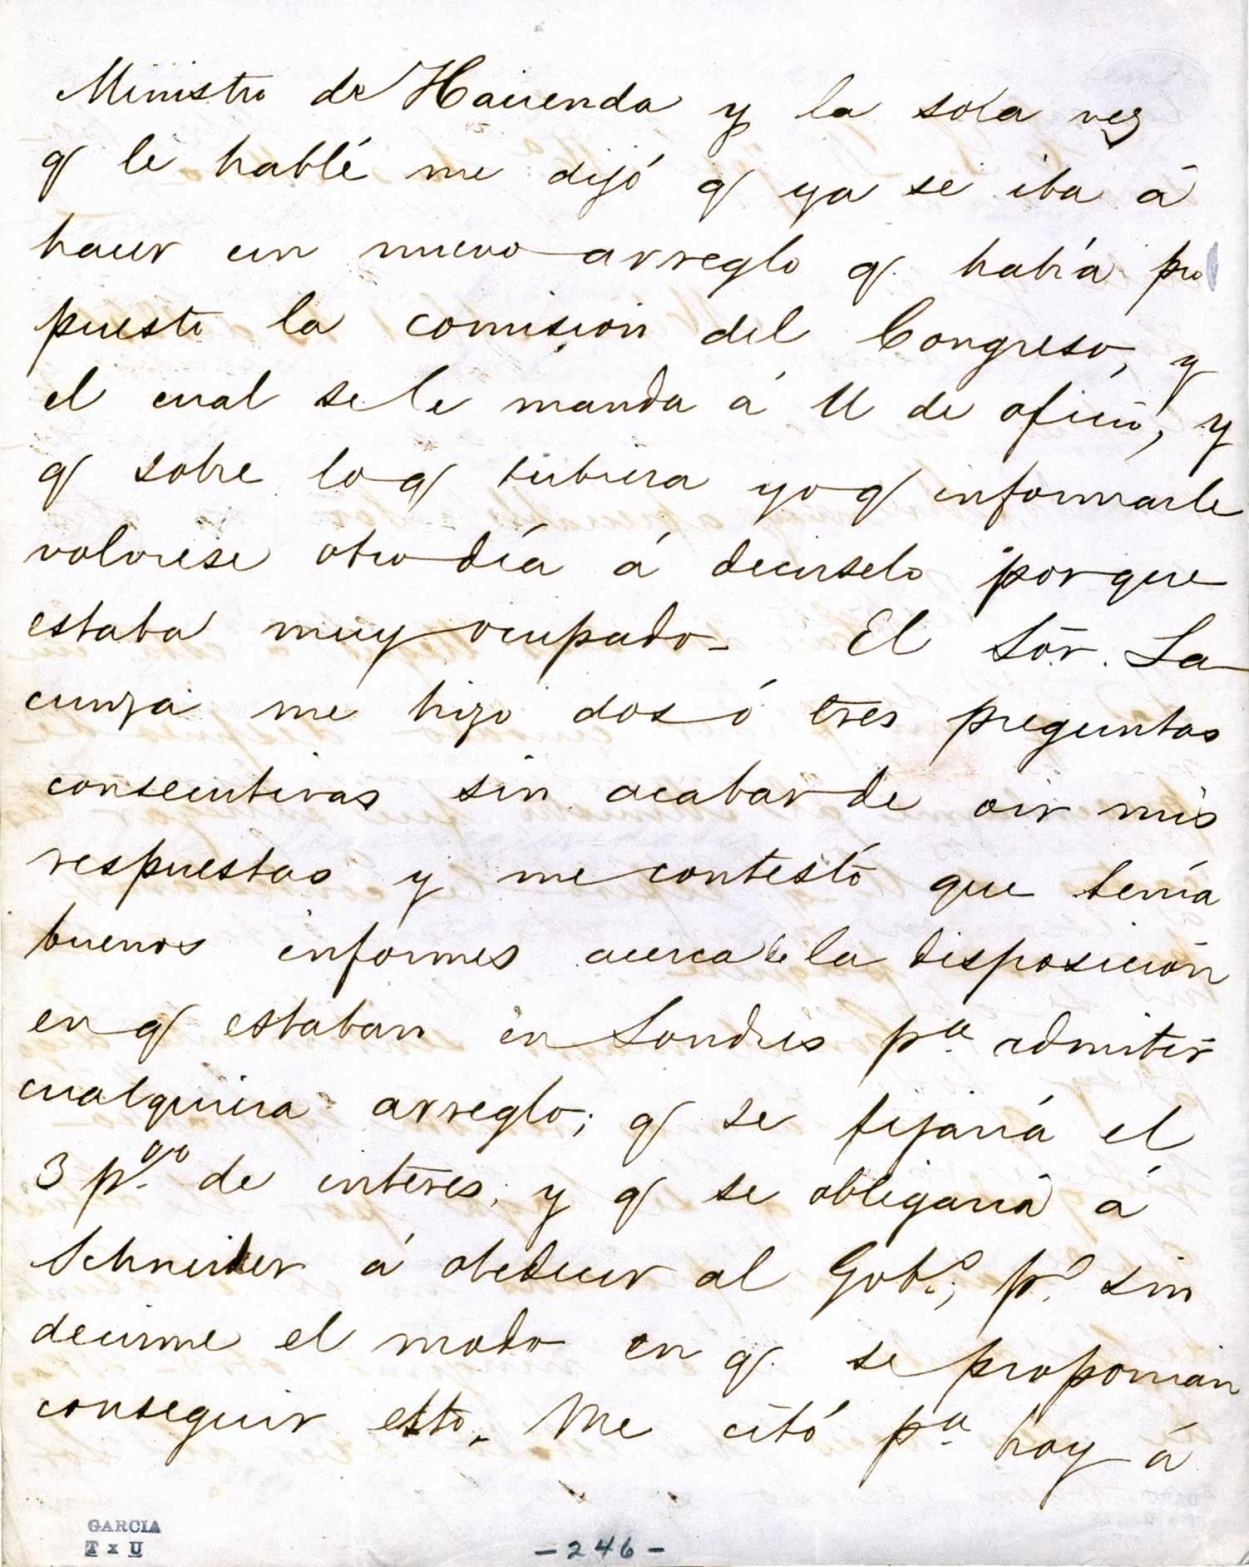 Ministro de Hacienda y la sola vez
q' le hablé me dijó q' ya se iba á
hacer un nuevo arreglo q' había pro
puesto la comision del Congreso, y
el cual se le manda á U de oficio, y
q' sobre lo q' tubiera yo q' informarle
volviese otro día á decirselo porque
estaba muy ocupado_ El Sõr. La-
cunza me hizo dos ó tres preguntas
consecutivas sin acabar de oir mis
respuestas y me contestó que tenía
buenos informes acerca de la disposición
en q' estaban en Londres pª admitir
cualquiera arreglo; q' se fijaría el
3 p.% de interes, y q' se obligaría á
Schneider á obedecer al Gobº.; pº. sin
decirme el modo en q' se proponian
conseguir esto. Me citó pª hoy á
GARCIA
T x U
-246-